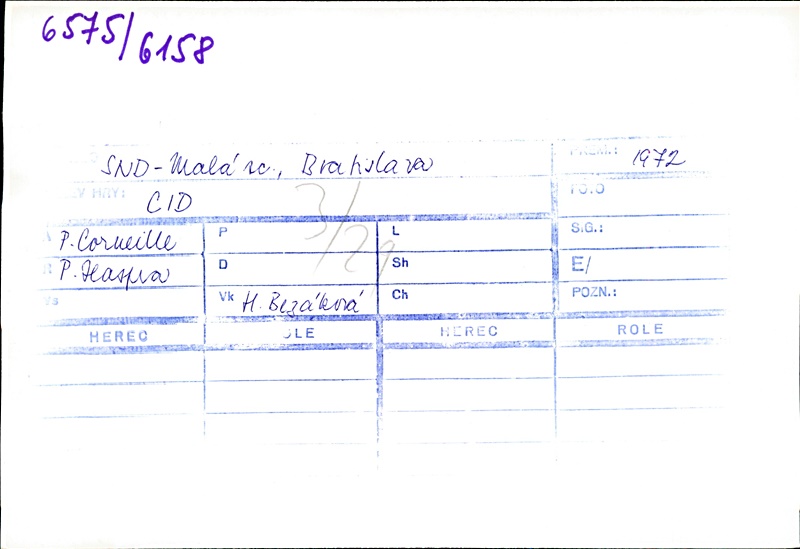 6575/6158
SND-Malá sc., Bratislava PREM.: 1972
HRY: CID
3/29
P. Corneille P L S.G.:
P. Haspra D Sh E/
Vs Vk H. Bezáková Ch POZN.:
HEREC ROLE HEREC ROLE